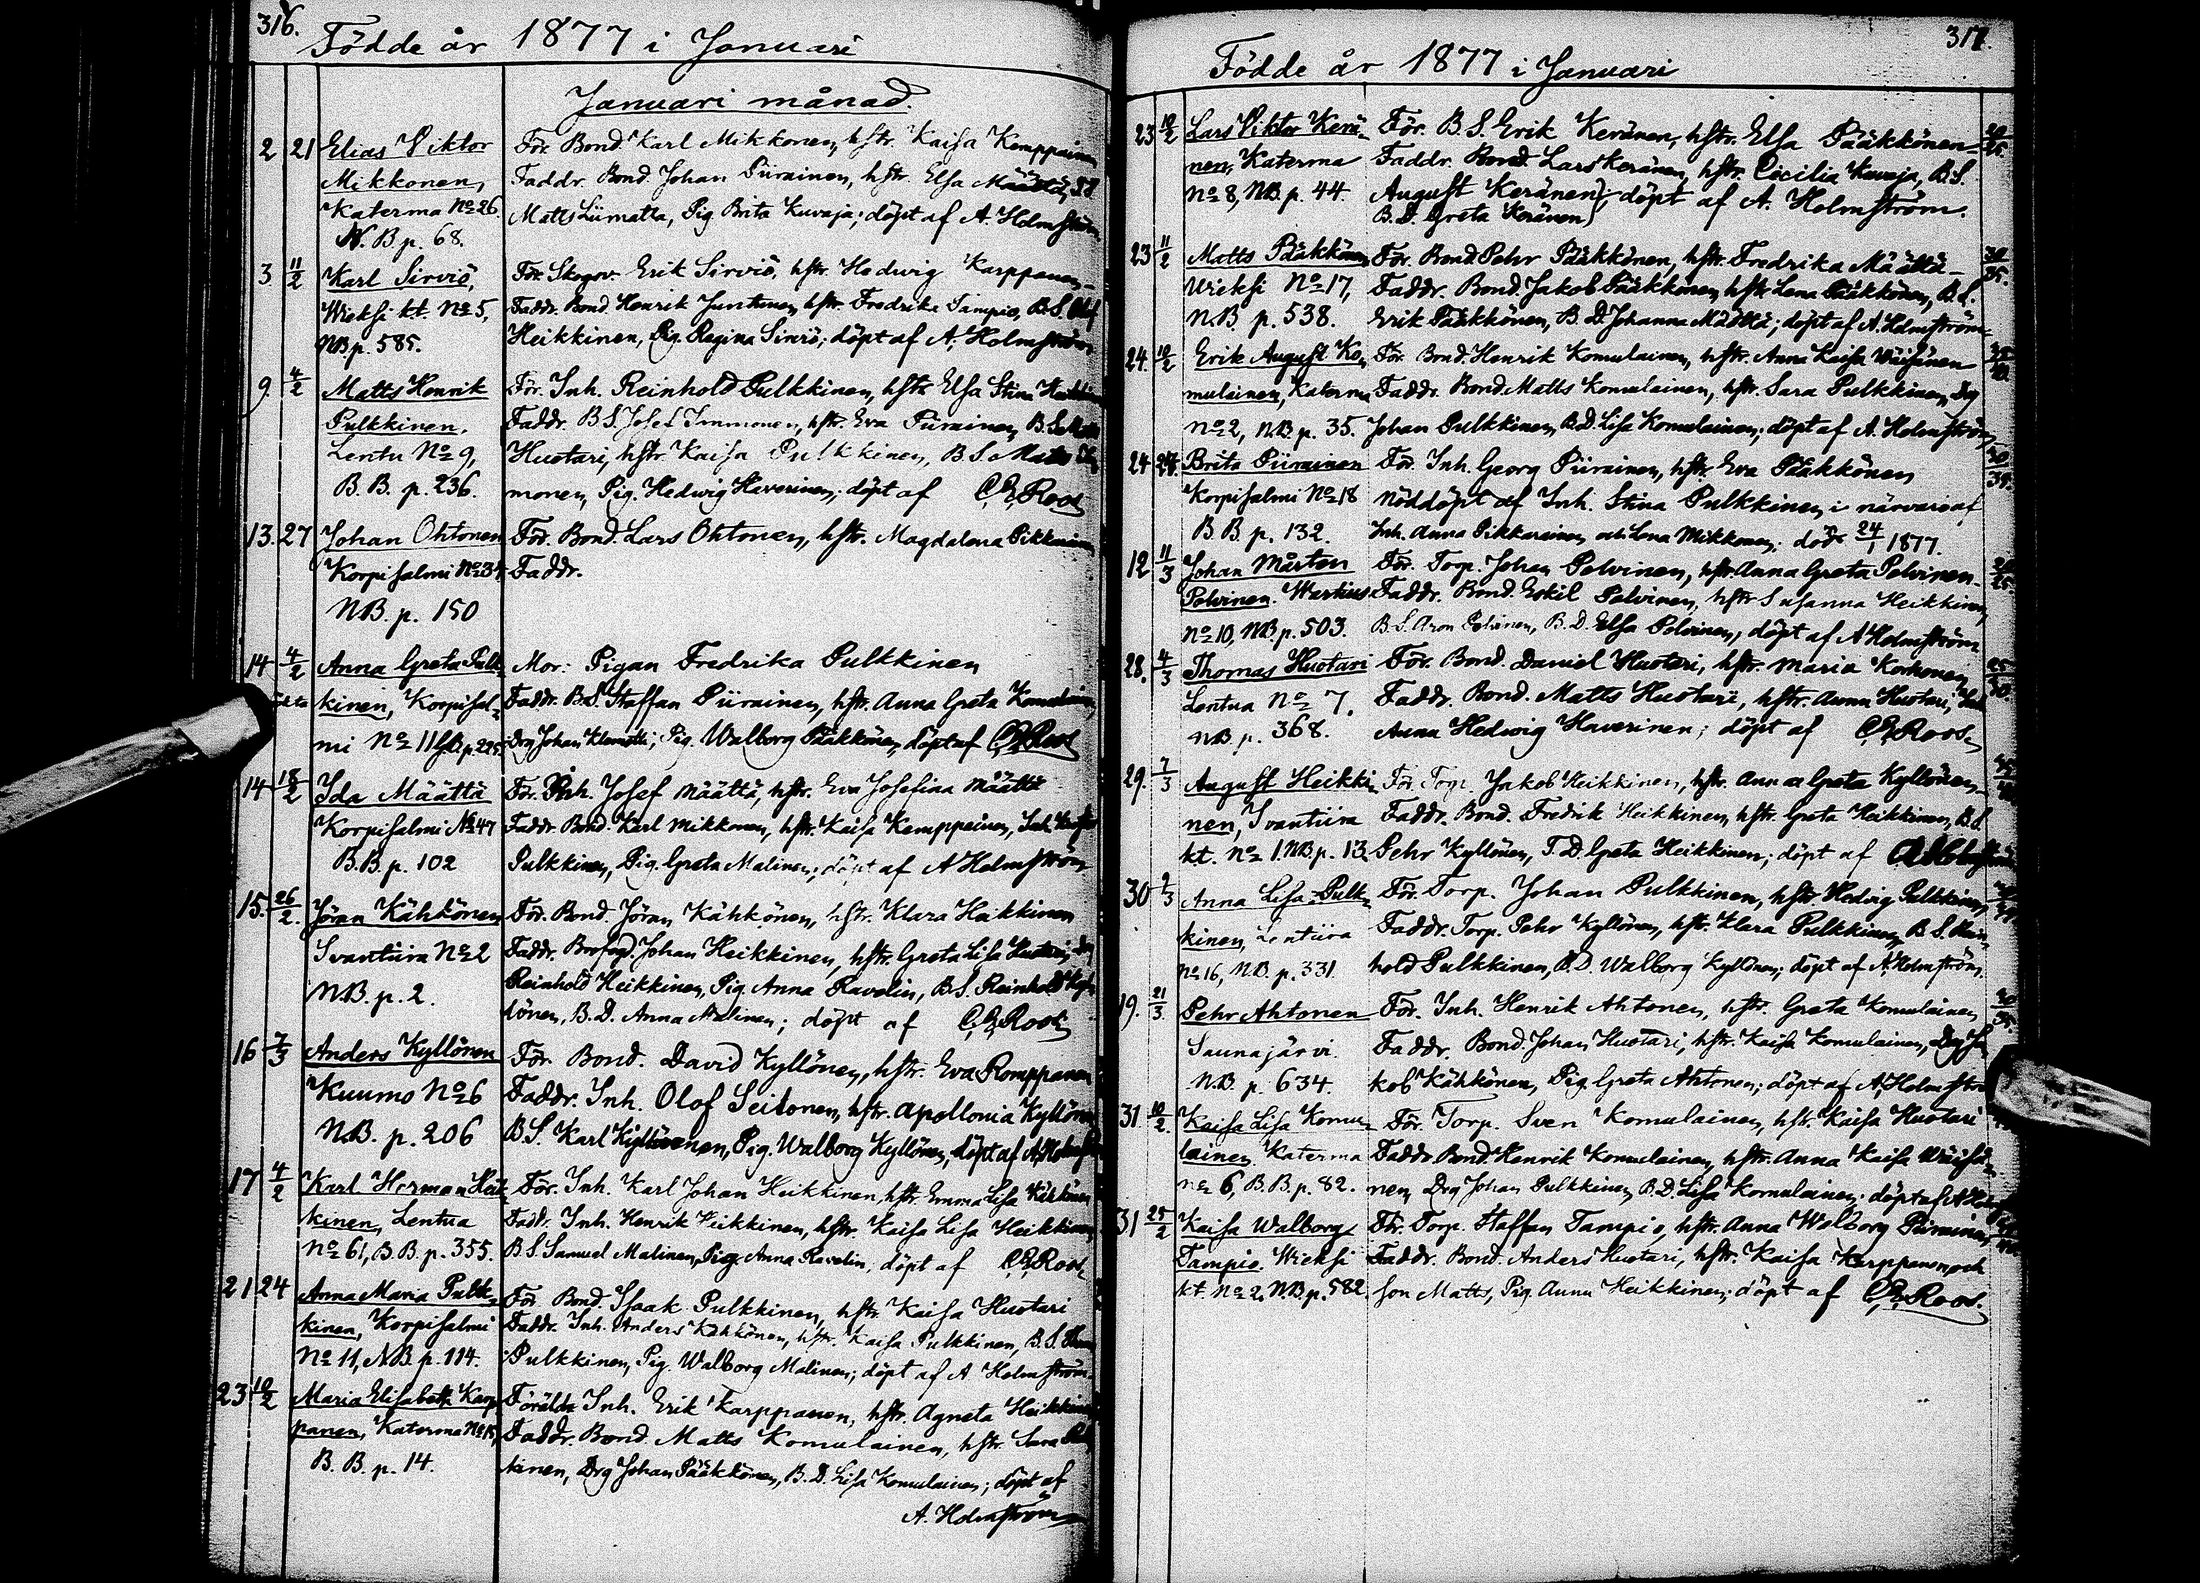 316.
Födde år 1877 i Januari
Januari månad.
2 21 Elias Viktor För. Bond. Karl Mikkonen, hstr. Kaisa Kemppainen
Mikkonen, Faddr. Bond. Johan Piirainen, hstr. Elsa Määttä,
Katerma No 26 Matts Liimatta, Pig. Brita Kuvaja; döpt af A. Holmström
N. B. p. 68.
3 11/2 Karl Sirviö, För. Skogov. Erik Sirviö, hstr. Hedwig Karppanen
Wieksi kt. No 5, Faddr. Bond. Henrik Juntunen, hstr. Fredrika Tampio, B.S. Olof
NB. p. 585. Heikkinen, Pig. Regina Sirviö; döpt af A. Holmström
9. 4/2 Matts Henrik För. Inh. Reinhold Pulkkinen, hstr. Elsa Stina
Pulkkinen. Faddr. B.S. Josef Immonen, hstr. Eva Piirainen, B.S.
Lentu No 9, Huotari, hstr. Kaisa Pulkkinen, B.S. Matts
B. B. p. 236. monen, Pig. Hedwig Haverinen; döpt af C. E. Roos
13. 27 Johan Ohtonen För. Bond. Lars Ohtonen, hstr. Magdalena Pikkarainen
Korpisalmi No 34 Faddr.
NB. p. 150
14 4/2 Anna Greta Pulk- Mor: Pigan Fredrika Pulkkinen
kinen, Korpisal- Faddr. B.S. Staffan Piirainen, hstr. Anna Greta Komulainen,
mi No 11 p. 225. Drg Johan Klemetti; Pig. Walborg Pääkkönen, döpt af C. E. Roos
14 18/2 Ida Määttä För. Inh. Josef Määttä, hstr. Eva Josefina Määttä
Korpisalmi No 47 Faddr. Bond. Karl Mikkonen, hstr. Kaisa Kemppainen, Inh.
B.B. p. 102 Pulkkinen, Pig. Greta Malinen; döpt af A Holmström
15. 26/2. Jöran Kähkönen För. Bond. Jöran Kähkönen, hstr. Klara Heikkinen
Ivantiira No 2 Faddr. Johan Heikkinen, hstr. Greta Lisa Huotari,
NB. p. 2. Reinhold Heikkinen, Pig. Anna Ravelin, B.S. Reinhold
könen, B.D. Anna Malinen; döpt af C. E. Roos
16 7/3 Anders Kyllönen För. Bond. David Kyllönen, hstr. Eva Romppanen
Kuumo No 6 Faddr. Inh. Olof Seitonen, hstr. Apollonia Kyllönen
NB. p. 206 B.S. Karl Pig. Walborg Kyllönen, döpt af A. Holmström
17 4/2 Karl Herman Heik- För. Inh. Karl Johan Heikkinen, hstr. Emma Lisa Kähkönen
kinen, Lentua Faddr. Inh. Henrik Heikkinen, hstr. Kaisa Lisa Heikkinen
No 61, B.B. p. 355. B.S. Samuel Malinen, Pig. Anna Ravelin, döpt af C. E. Roos
21 24 Anna Maria Pulk- För. Bond. Isaak Pulkkinen, hstr. Kaisa Huotari
kinen, Korpisalmi Faddr. Inh. Anders Kähkönen, hstr. Kaisa Pulkkinen, B.S.
No 11, NB. p. 114. Pulkkinen, Pig. Walborg Malinen; döpt af A Holmström
23 10/2 Maria Elisabeth Karp- Föräldr. Inh. Erik Karppanen, hstr. Agneta Heikkinen
panen, Katerma No 15, Faddr. Bond. Matts Komulainen, hstr. Sara
B. B. p. 14. kinen, Drg Johan Pääkkönen, B.D. Lisa Komulainen; döpt af
A. Holmström
317.
Födde år 1877 i Januari
23 10/2 Lars Viktor Kerä- För. B.S. Erik Keränen, hstr. Elsa Pääkkönen
nen, Katerma Faddr. Bond. Lars Keränen, hstr. Cecilia Kuvaja, B.S.
No 8, NB. p. 44. August Keränen, döpt af A. Holmström.
B.D. Greta Keränen
23 11/2 Matts Pääkkönen För. Bond Pehr Pääkkönen, hstr. Fredrika Määttä 30/35.
Wieksi No 17, Faddr. Bond. Jakob Pääkkönen, hstr. Lena Pääkkönen, B.S.
N.B. p. 538. Erik Pääkkönen, B.D. Johanna Määttä; döpt af A. Holmström
24. 10/2 Erik August Ko- För. Bond. Henrik Komulainen, hstr. Anna Kaisa Wäisänen
mulainen, Katerma Faddr. Bond. Matts Komulainen, hstr. Sara Pulkkinen, Drg
No 2, N.B. p. 35. Johan Pulkkinen, B.D. Lisa Komulainen; döpt af A. Holmström
24 24. Brita Piirainen För. Inh. Georg Piirainen, hstr. Eva Pääkkönen
Korpisalmi No 18 nöddöpt af Inh. Stina Pulkkinen i närvaro af
B B. p. 132. Inh. Anna Pikkarainen och Lena Mikkonen; död 24/1 1877.
12 11/3 Johan Mårten För. Torp. Johan Polvinen, hstr. Anna Greta Polvinen
Polvinen. Wartius Faddr. Bond. Eskil Polvinen, hstr. Susanna Heikkinen,
No 10, NB. p. 503. B.S. Aron Polvinen, B.D. Elsa Polvinen, döpt af A Holmström
28. 4/3 Thomas Huotari För. Bond. Daniel Huotari, hstr. Maria Korhonen
Lentua No 7. Faddr. Bond. Matts Huotari, hstr. Anna Huotari,
NB. p. 368. Anna Hedwig Haverinen; döpt af C. E. Roos
29. 7/3 August Heikki- För. Torp. Jakob Heikkinen, hstr. Anna Greta Kyllönen
nen, Ivantiira Faddr. Bond. Fredrik Heikkinen, hstr. Greta Heikkinen, B.S.
kt. No 1. NB. p. 13. Pehr Kyllönen, T.D. Greta Heikkinen; döpt af
30 9/3 Anna Lisa Pulk- För. Torp. Johan Pulkkinen, hstr. Hedvig Pulkkinen,
kinen, Lentiira Faddr. Torp. Pehr Kyllönen, hstr. Klara Pulkkinen, B.S. Rein-
No 16, NB. p. 331. hold Pulkkinen, B.D. Walborg Kyllönen; döpt af A. Holmström
19. 21/3. Pehr Ahtonen För. Inh. Henrik Ahtonen, hstr. Greta Komulainen
Saunajärvi. Faddr. Bond. Johan Huotari, hstr. Kaisa Komulainen, Drg Ja-
NB. p. 634. kob Kähkönen, Pig. Greta Ahtonen; döpt af A. Holmström
31. 10/2. Kaisa Lisa Komu- För. Torp. Sven Komulainen, hstr. Kaisa Huotari
lainen Katerma Faddr. Bond. Henrik Komulainen, hstr. Anna Kaisa Wäisä-
No 6, B.B. p. 82. nen, Drg Johan Pulkkinen, B.D. Lisa Komulainen; döpt af A. Holmström
31 25/2 Kaisa Walborg För. Torp. Staffan Tampio, hstr. Anna Walborg Piirainen,
Tampio. Wieksi Faddr. Bond. Anders Huotari, hstr. Kaisa Karppanen och
kt. No 2. NB. p. 582. son Matts, Pig. Anna Heikkinen; döpt af C. E. Roos.